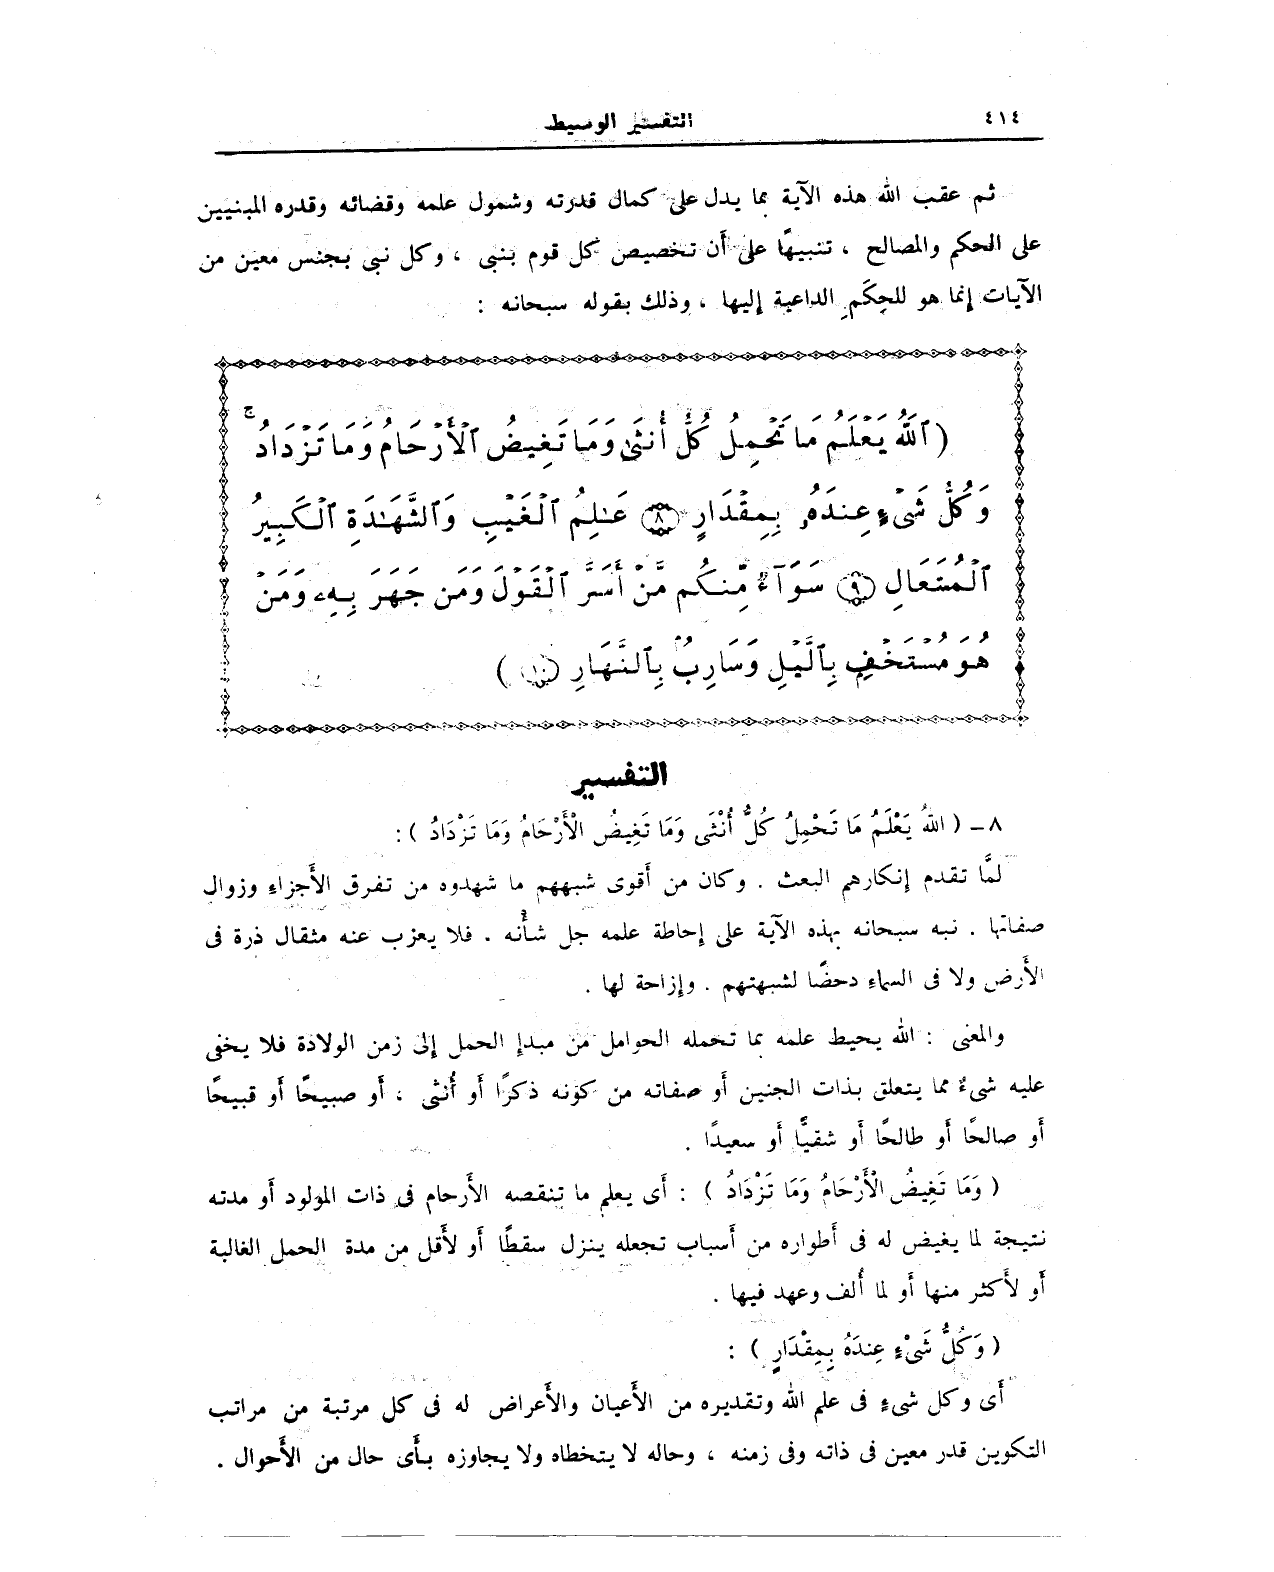 ٤١٤
التفسير الوسيط
ثم عقب الله هذه الآية بما يدل على كمال قدرته وشمول علمه وقضائه وقدره المبنيين
على الحكم والمصالح ، تنبيهًا على أن تخصيص كل قوم بنبى ، وكل نبى بجنس معين من
الآيات إنما هو للحِكَمِ الداعية إليها ، وذلك بقوله سبحانه :
( ٱللَّهُ يَعْلَمُ مَا تَحْمِلُ كُلُّ أُنثَىٰ وَمَا تَغِيضُ ٱلْأَرْحَامُ وَمَا تَزْدَادُ ۚ
وَكُلُّ شَىْءٍ عِندَهُۥ بِمِقْدَارٍ ﴿٨﴾ عَـٰلِمُ ٱلْغَيْبِ وَٱلشَّهَـٰدَةِ ٱلْكَبِيرُ
ٱلْمُتَعَالِ ﴿٩﴾ سَوَآءٌ مِّنكُم مَّنْ أَسَرَّ ٱلْقَوْلَ وَمَن جَهَرَ بِهِۦ وَمَنْ
هُوَ مُسْتَخْفٍ بِٱلَّيْلِ وَسَارِبٌ بِٱلنَّهَارِ ﴿١٠﴾ )
التفسير
٨ – ( اللهُ يَعْلَمُ مَا تَحْمِلُ كُلُّ أُنْثَى وَمَا تَغِيضُ الْأَرْحَامُ وَمَا تَزْدَادُ ) :
لمَّا تقدم إنكارهم البعث . وكان من أقوى شبههم ما شهدوه من تفرق الأجزاء وزوال
صفاتها . نبه سبحانه بهذه الآية على إحاطة علمه جل شأنه . فلا يعزب عنه مثقال ذرة فى
الأرض ولا فى السماء دحضًا لشبهتهم . وإزاحة لها .
والمعنى : الله يحيط علمه بما تحمله الحوامل من مبدإ الحمل إلى زمن الولادة فلا يخفى
عليه شىءٌ مما يتعلق بذات الجنين أو صفاته من كونه ذكرًا أو أُنثى ، أو صبيحًا أو قبيحًا
أو صالحًا أو طالحًا أو شقيًّا أو سعيدًا .
( وَمَا تَغِيضُ الْأَرْحَامُ وَمَا تَزْدَادُ ) : أى يعلم ما تنقصه الأرحام فى ذات المولود أو مدته
نتيجة لما يغيض له فى أطواره من أسباب تجعله ينزل سقطًا أو لأقل من مدة الحمل الغالبة
أو لأكثر منها أو لما أُلف وعهد فيها .
( وَكُلُّ شَىْءٍ عِندَهُ بِمِقْدَارٍ ) :
أى وكل شىءٍ فى علم الله وتقديره من الأعيان والأعراض له فى كل مرتبة من مراتب
التكوين قدر معين فى ذاته وفى زمنه ، وحاله لا يتخطاه ولا يجاوزه بأى حال من الأحوال .